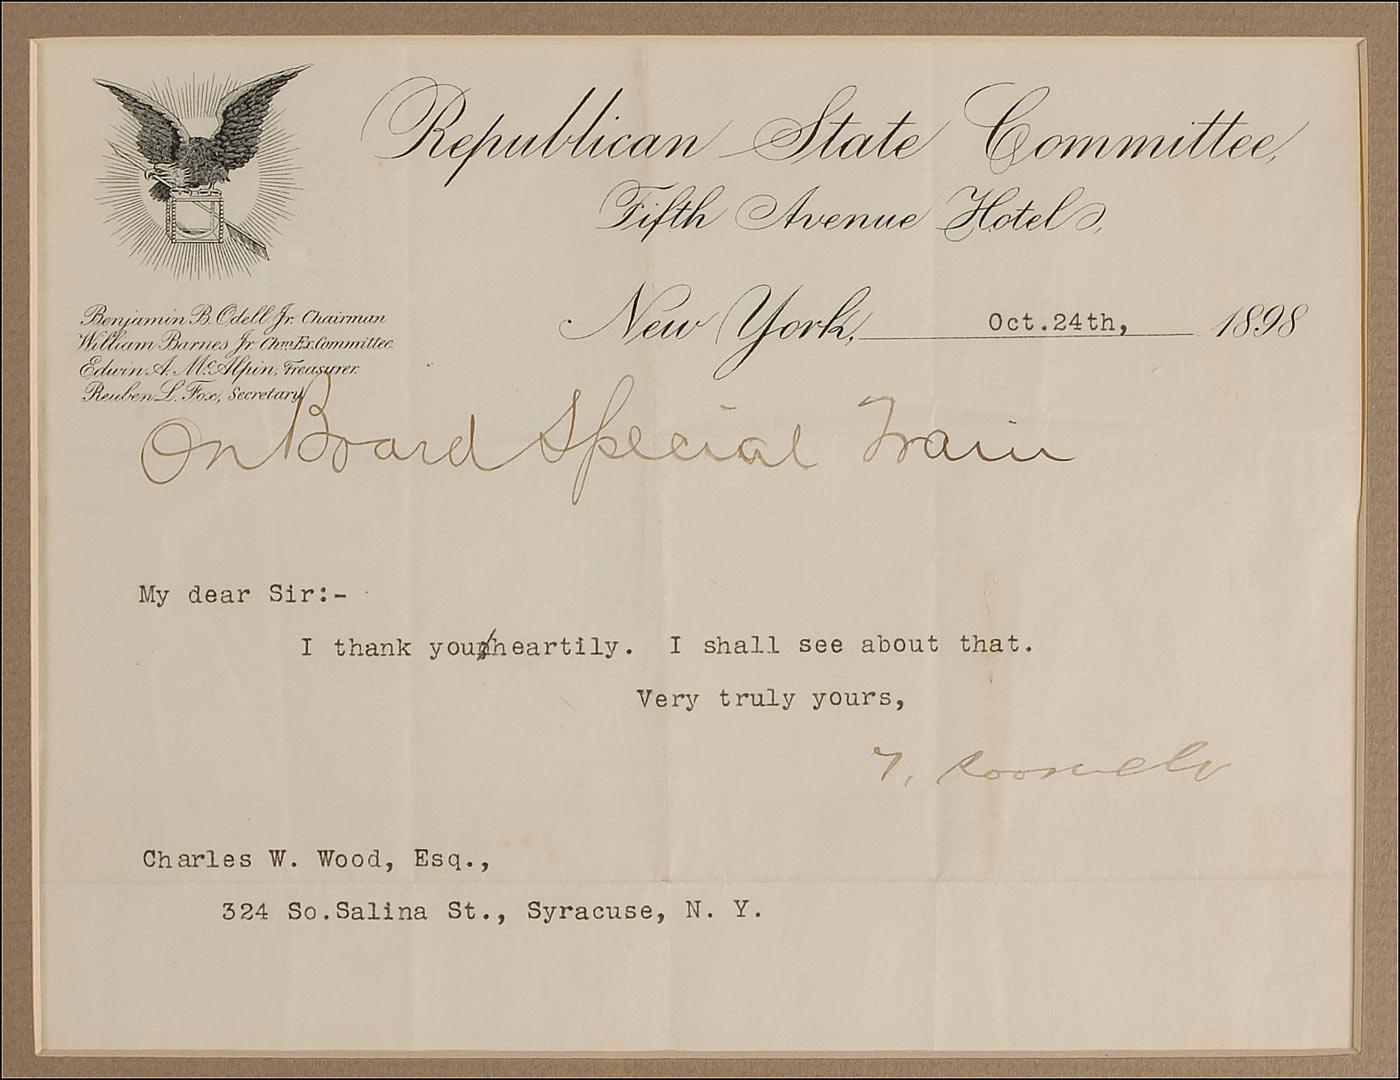 Republican State Committee,
Fifth Avenue Hotel,
New York, Oct.24th, 1898
Benjamin B. Odell Jr. Chairman
William Barnes Jr. Chm.Ex.Committee
Edwin A. McAlpin, Treasurer.
Reuben L. Fox, Secretary
On Board Special Train
My dear Sir:-
I thank you heartily. I shall see about that.
Very truly yours,
T. Roosevelt
Charles W. Wood, Esq.,
324 So.Salina St., Syracuse, N. Y.